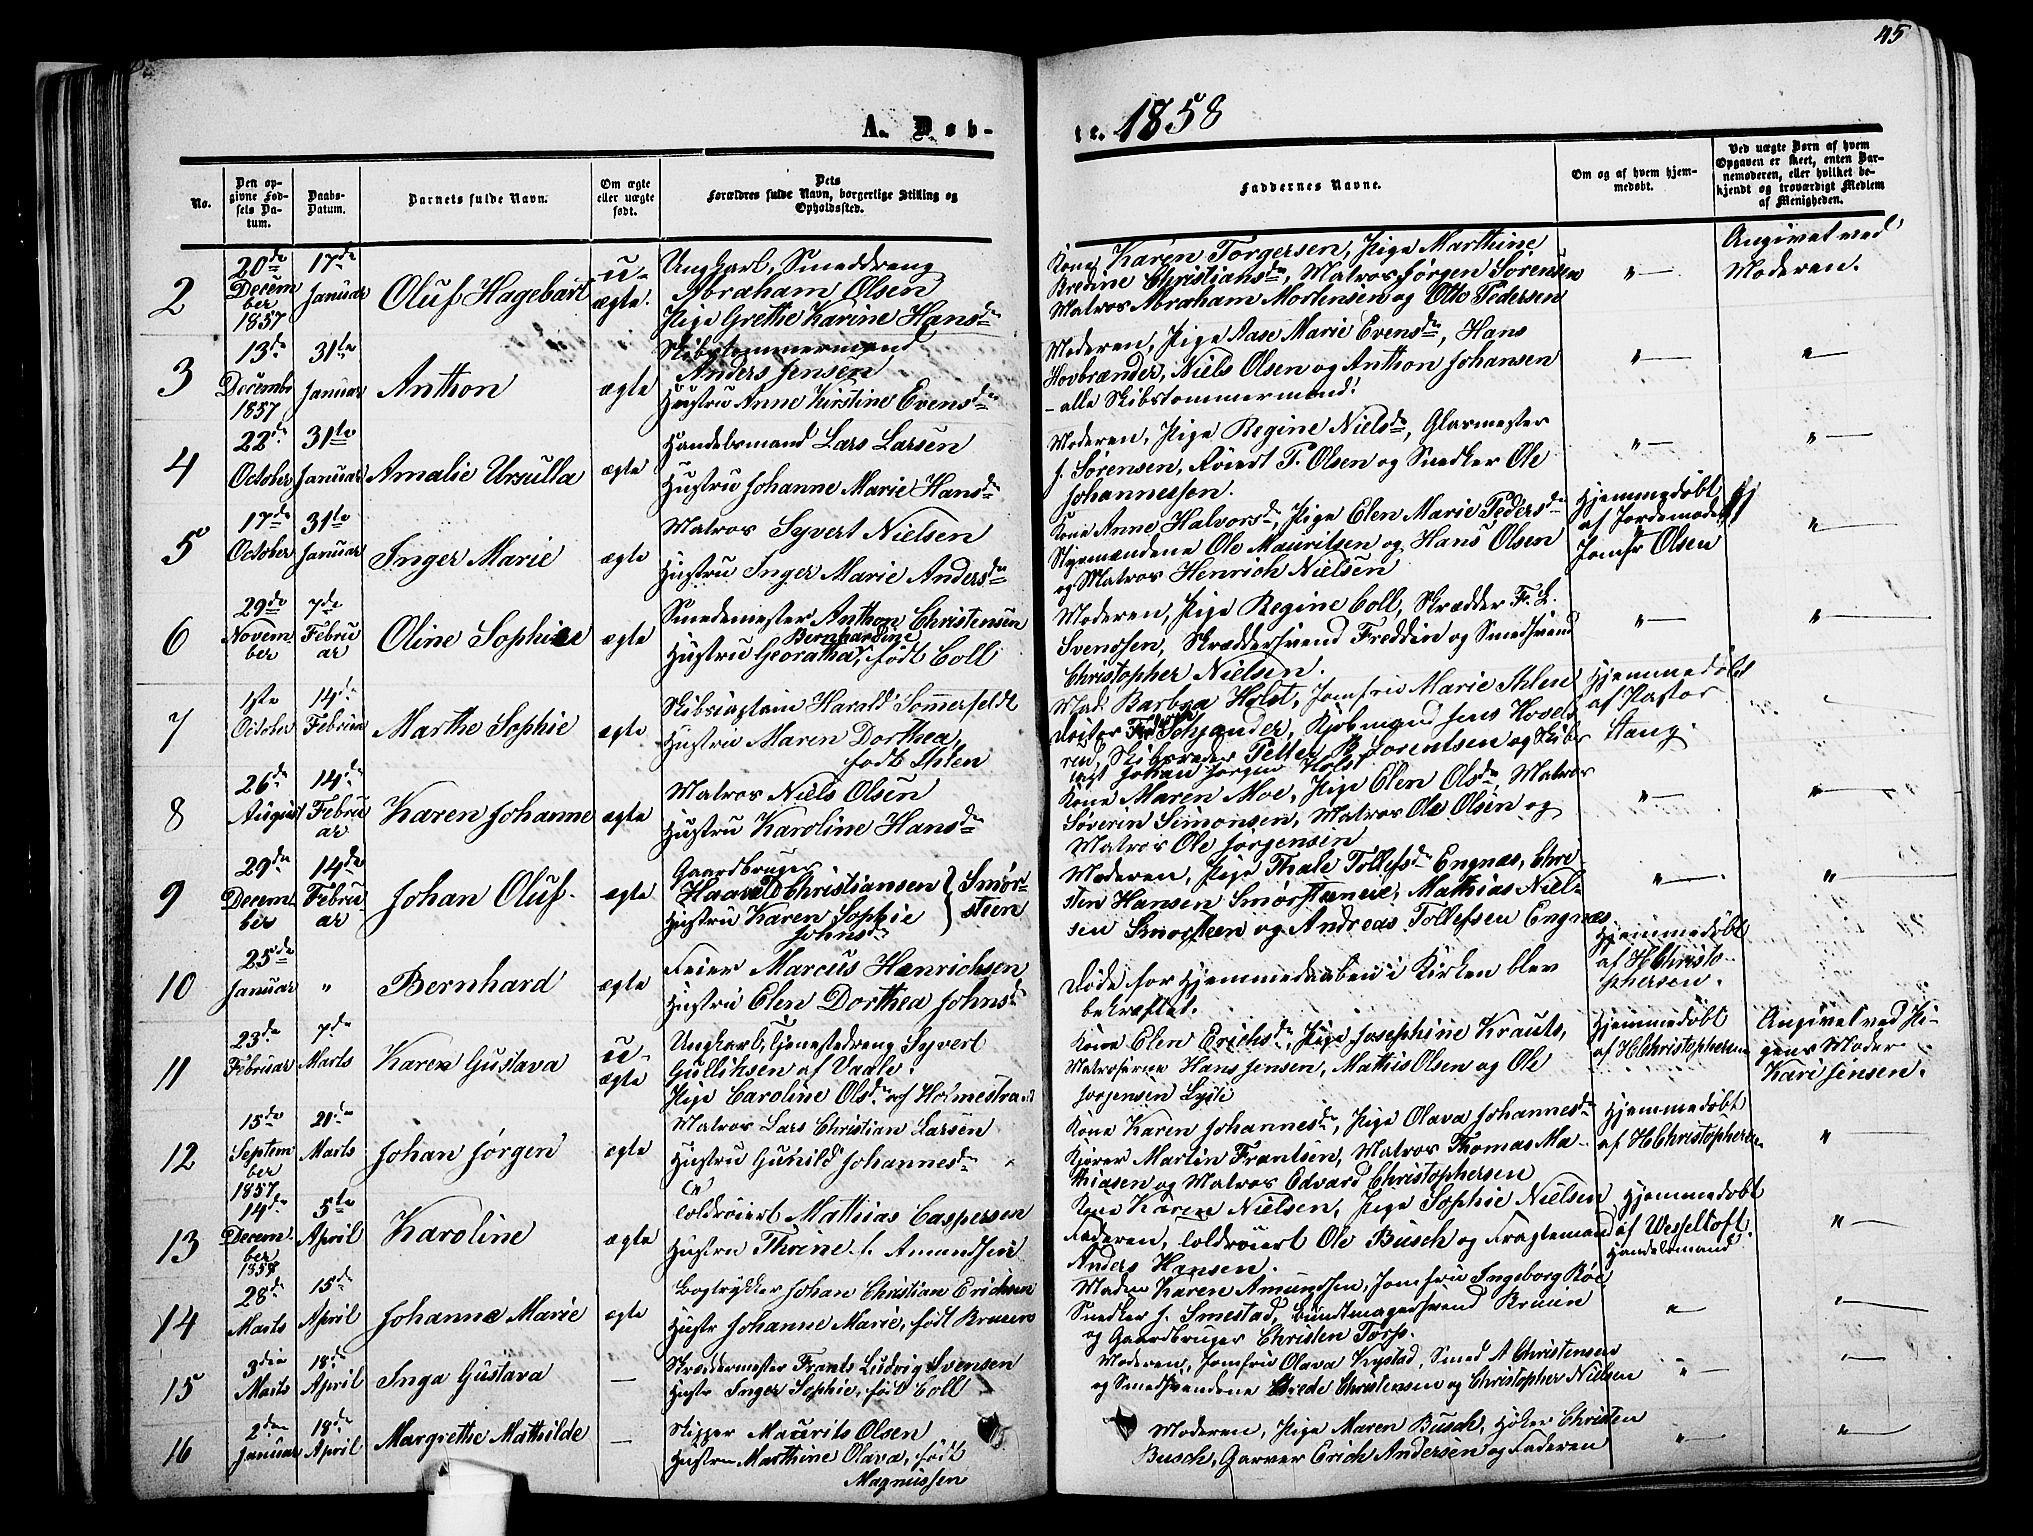 45
A. Døb-
te. 1858
No.
Den op-
givne Fød-
sels Da-
tum.
Daabs-
Datum.
Barnets fulde Navn.
Om ægte
eller uægte
født.
Dets
Forældres fulde Navn, borgerlige Stilling og
Opholdssted.
Faddernes Navne.
Om og af hvem hjem-
medøbt.
Ved uægte Børn af hvem
Opgaven er skeet, enten Bar-
nemoderen, eller hvilket be-
kjendt og troværdigt Medlem
af Menigheden.
2
20de
Decem
ber
1857
17de
Januar
Oluf Hagebart
u-
ægte.
Ungkarl, Smeddreng
Abraham Olsen
Pige Grethe Karine Hansdr
Kone Karen Torgersen, Pige Marthine
Bredine Christiansdr, Matros Jørgen Sørensen
Matros Abraham Mortensen og Otto Pedersen
"—
Angivet ved
Moderen.
3
13de
Decembr
1857
31te
Januar
Anthon
ægte
Skibstømmermand
Anders Jensen
Hustru Anne Kirstine Evensdr
Moderen, Pige Aase Marie Evensdr, Hans
Hovbrænder, Niels Olsen og Anthon Johansen
- alle Skibstømmermænd.
"—
"—
4
22de
October
31te
Januar
Amalie Ursulla
ægte
Handelsmand Lars Larsen
Hustru Johanne Marie Hansdr
Moderen, Pige Regine Nielsdr, Glarmester
J. Sørensen, Røiert P. Olsen og Snedker Ole
Johannessen.
"—
"—
5
17de
October
31te
Januar
Inger Marie
ægte
Matros Syvert Nielsen
Hustru Inger Marie Andersdr
Kone Anne Halvorsdr, Pige Elen Marie Pedersdr
Styrmændene Ole Mauritsen og Hans Olsen
og Matros Henrich Nielsen
Hjemmedøbt
af Jordemoder
Jomfr Olsen
"—
6
29de
Novem
ber
7de
Febru
ar
Oline Sophie
ægte
Smedemester Anthon Christensen
Bernhardine
Hustru Georathar, født Coll
Moderen, Pige Regine Coll, Skrædder F. L.
Svendsen, Skræddersvend Freddin og Smedsvend
Christopher Nielsen.
"—
"—
7
1ste
October
14de
Februar
Marthe Sophie
ægte
Skibscaptain Harald Sommerfeldt
Hustru Maren Dorthea,
født Ihlen
Mad. Barbra Holst, Jomfru Marie Ihlen
Doctor Schjander, Kjøbmand Jens Hovel
ren, Skibsreder Petter B. Lorentsen og Skibs
capt Johan Jørgen Holst
Hjemmedøbt
af Pastor
Stang.
8
26de
August
14de
Febru
ar
Karen Johanne
ægte
Matros Niels Olsen
Hustru Karoline Hansdr
Kone Maren Moe, Pige Elen Olsdr, Matros
Søverin Simonsen, Matros Ole Olsen og
Matros Ole Jørgensen
"—
"—
9
29de
Decem
ber
14de
Febru-
ar
Johan Oluf.
ægte
Gaardbruger
Haarald Christiansen
Hustru Karen Sophie
Johnsdr
Smør-
steen
Moderen, Pige Thale Tollefsdr Engnæs, Chri-
sten Hansen Smørsteneie, Mathias Niel-
sen Smørsteen og Andreas Tollefsen Engnæs.
"—
"—
10
25de
Januar
"
Bernhard
ægte
Feier Marcus Henrichsen
Hustru Elen Dorthea Johnsdr
Døde før Hjemmedaaben i Kirken blev
bekræftet.
Hjemmedøbt
af H Christo-
phersen.
11
23de
Februar
7de
Marts
Karen Gustava
u-
ægte
Ungkarl, Tjenestedreng Syvert
Gulliksen af Vaale.
Pige Caroline Olsdr af Holmestrand
Kone Elen Erichsdr, Pige Josephine Krauts,
Matroserne Hans Jensen, Mathis Olsen og Ole
Jørgensen Lysti
Hjemmedøbt
af H Christophersen
Angivet ved Pi-
gens Moder
Kari Jensen.
12
15de
Septem
ber
1857
21de
Marts
Johan Jørgen
ægte
Matros Lars Christian Larsen
Hustru Gunild Johannesdr
Kone Karen Johannesdr, Pige Olava Johannesdr
Kjører Martin Frantsen, Matros Thomas Ma-
thiasen og Matros Edvard Christophersen
Hjemmedøbt
af H Christophersen
"—
13
14de
Decem-
ber
1857
5te
April
Karoline
ægte
Toldrøiert Mathias Caspersen
Hustru Thrine f. Amundsen
Kone Karen Nielsen, Pige Sophie Nielsen
Faderen, Toldrøiert Ole Busch og Fragtemand
Anders Hansen.
Hjemmedøbt
af Wesseltoft
Handelsmand
"—
14
28de
Marts
15de
April
Johanne Marie
ægte
Bogtrykker Johan Christian Erichsen
Hustr Johanne Marie, født Bruun
Madm Karen Amundsen, Jomfru Ingeborg Bøe
Snedker J. Smestad, Bundtmagersvend Bruun
og Gaardbruger Christen Torp.
"—
"—
15
3die
Marts
18de
April
Inga Gustava
—
Skræddermester Frants Ludvig Svensen
Hustr Inger Sophie, født Coll
Moderen, Jomfru Olava Kystad, Smed A Christensen
og Smedsvendene Christensen og Christopher Nielsen
"—
"—
16
2den
Januar
18de
April
Margrethe Mathilde
—
Skipper Maurits Olsen
Hustru Marthine Olava, født
Magnussen
Moderen, Pige Maren Busch, Høker Christen
Busch, Garver Erich Andersen og Faderen
"—
"—